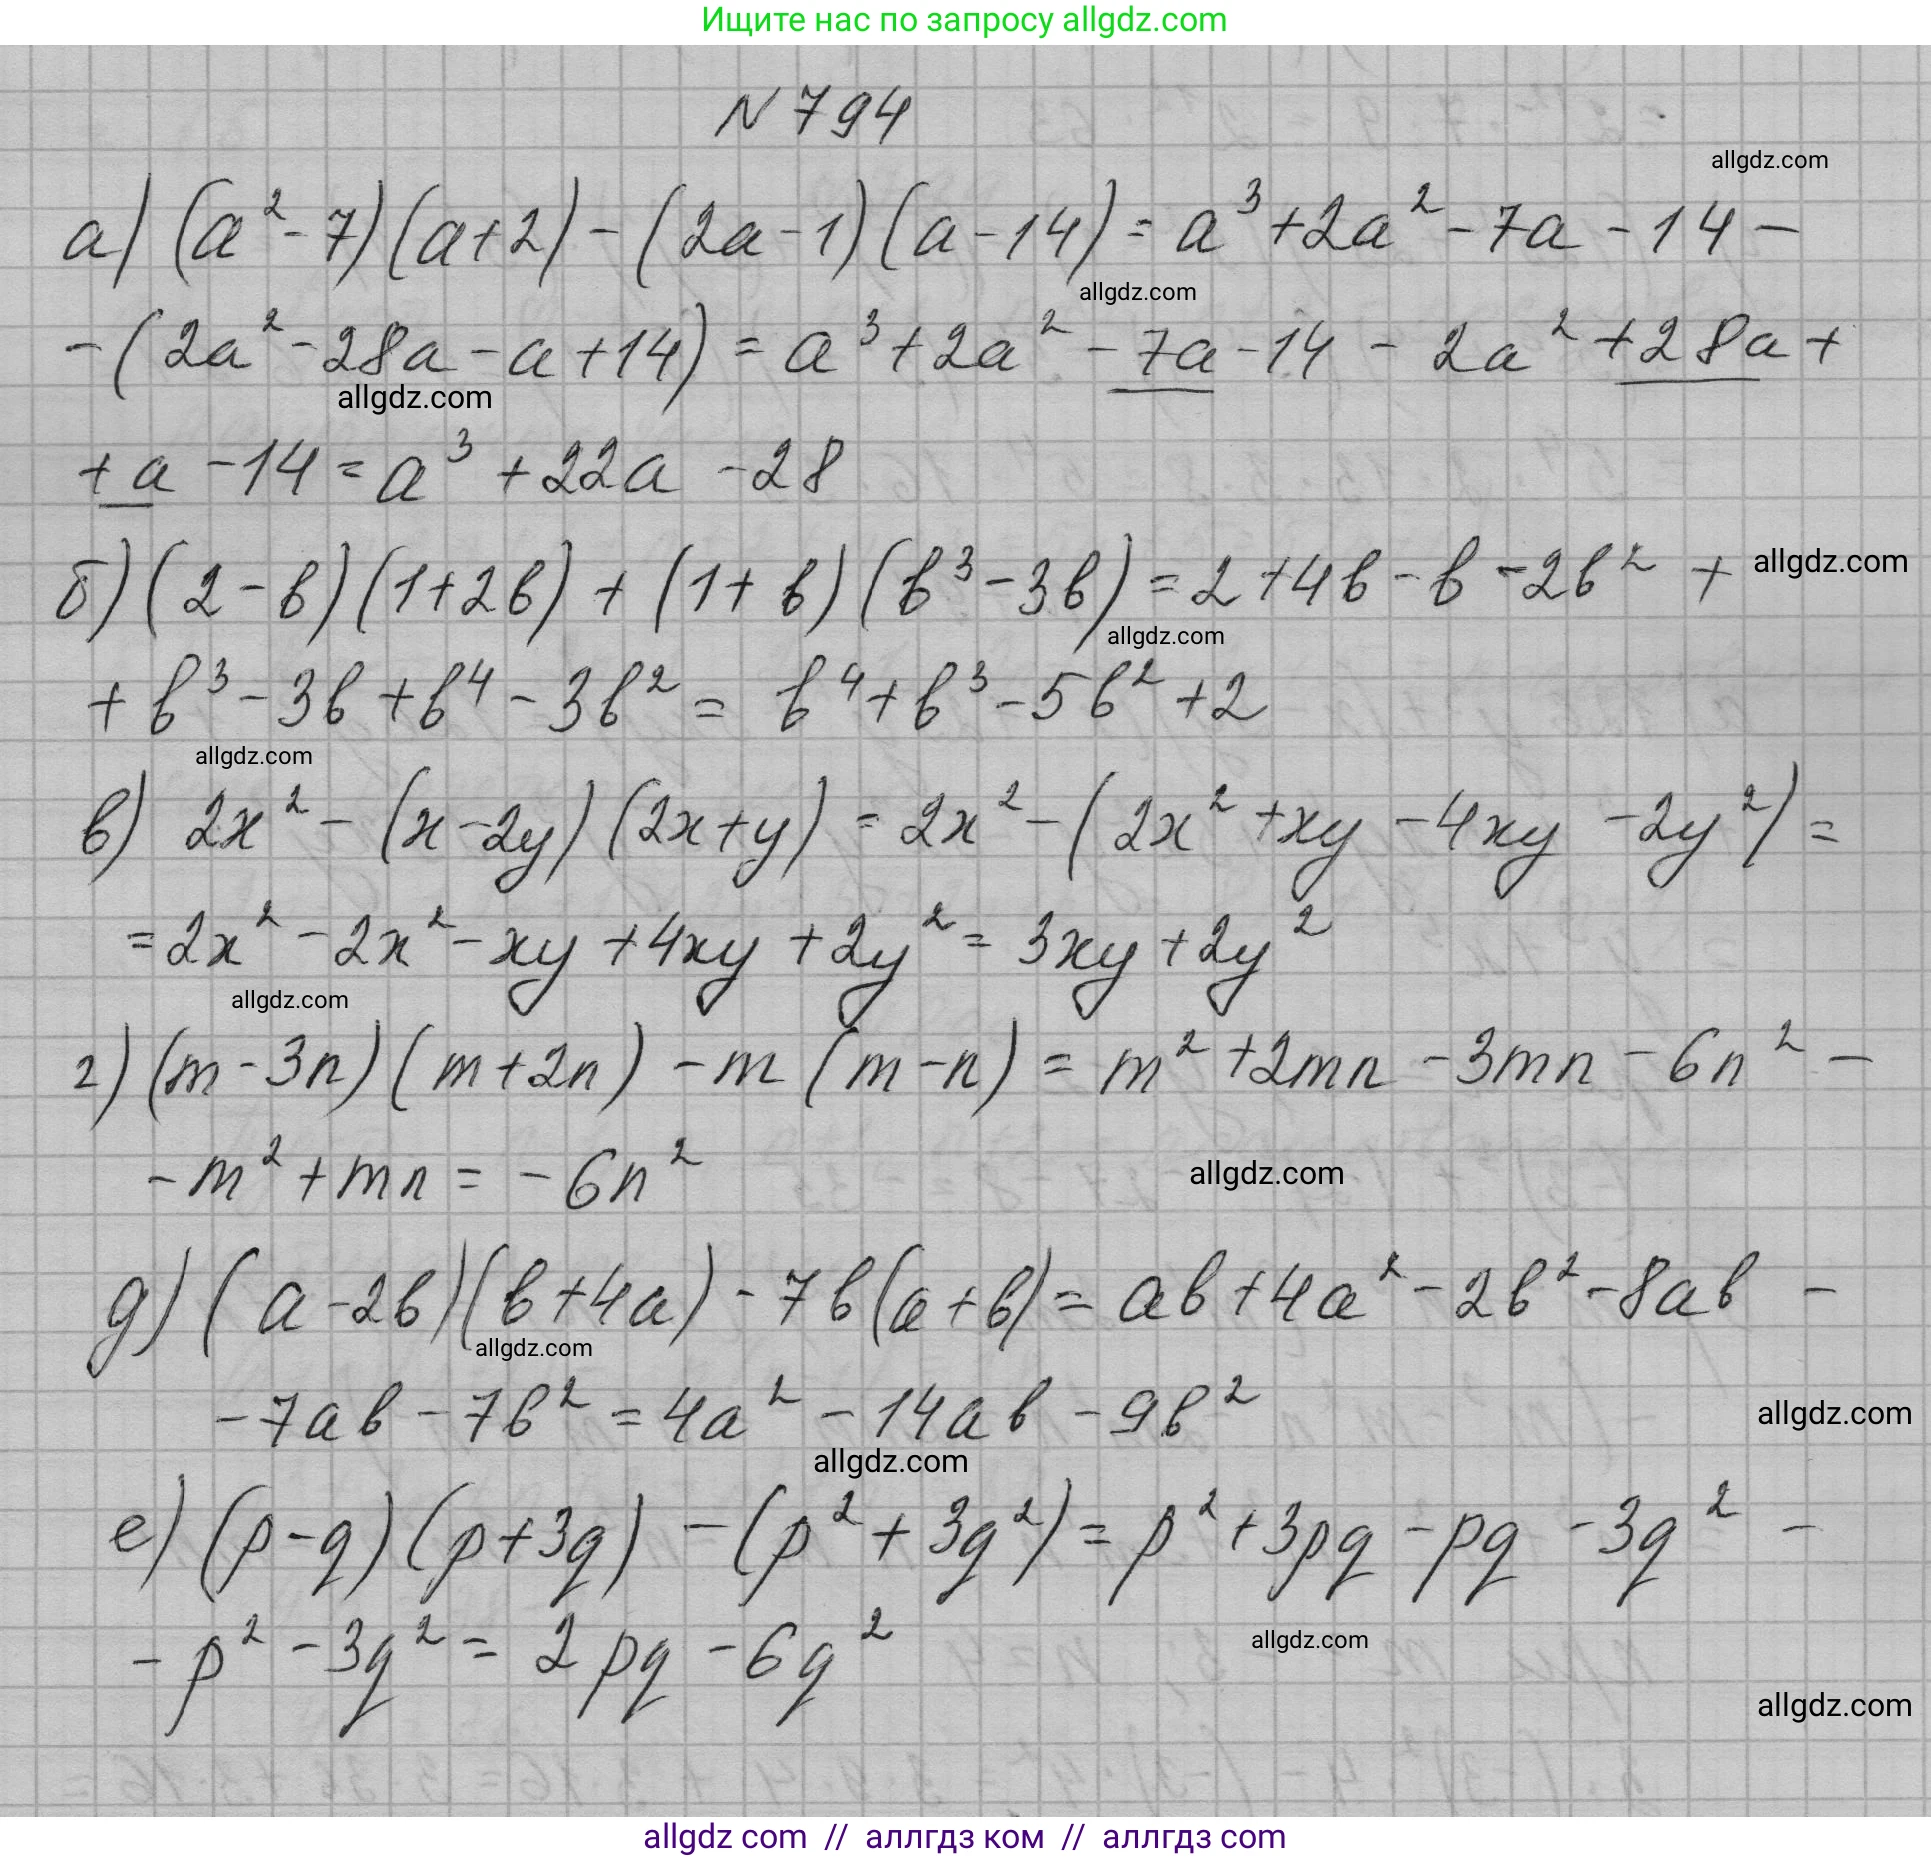 Ищите нас по запросу allgdz.com
N 794
allgdz.com
а) (a² - 7)(a+2) - (2a - 1)(a - 14) = a³ + 2a² - 7a - 14 -
allgdz.com
- (2a² - 28a - a + 14) = a³ + 2a² - 7a - 14 - 2a² + 28a +
allgdz.com
+ a - 14 = a³ + 22a - 28
б) (2 - b)(1 + 2b) + (1 + b)(b³ - 3b) = 2 + 4b - b - 2b² +
allgdz.com
allgdz.com
+ b³ - 3b + b⁴ - 3b² = b⁴ + b³ - 5b² + 2
allgdz.com
в) 2x² - (x - 2y)(2x + y) = 2x² - (2x² + xy - 4xy - 2y²) =
= 2x² - 2x² - xy + 4xy + 2y² = 3xy + 2y²
allgdz.com
г) (m - 3n)(m + 2n) - m(m - n) = m² + 2mn - 3mn - 6n² -
- m² + mn = - 6n²
allgdz.com
д) (a - 2b)(b + 4a) - 7b(a + b) = ab + 4a² - 2b² - 8ab -
allgdz.com
- 7ab - 7b² = 4a² - 14ab - 9b²
allgdz.com
allgdz.com
е) (p - q)(p + 3q) - (p² + 3q²) = p² + 3pq - pq - 3q² -
- p² - 3q² = 2pq - 6q²
allgdz.com
allgdz.com
allgdz com // аллгдз ком // аллгдз com